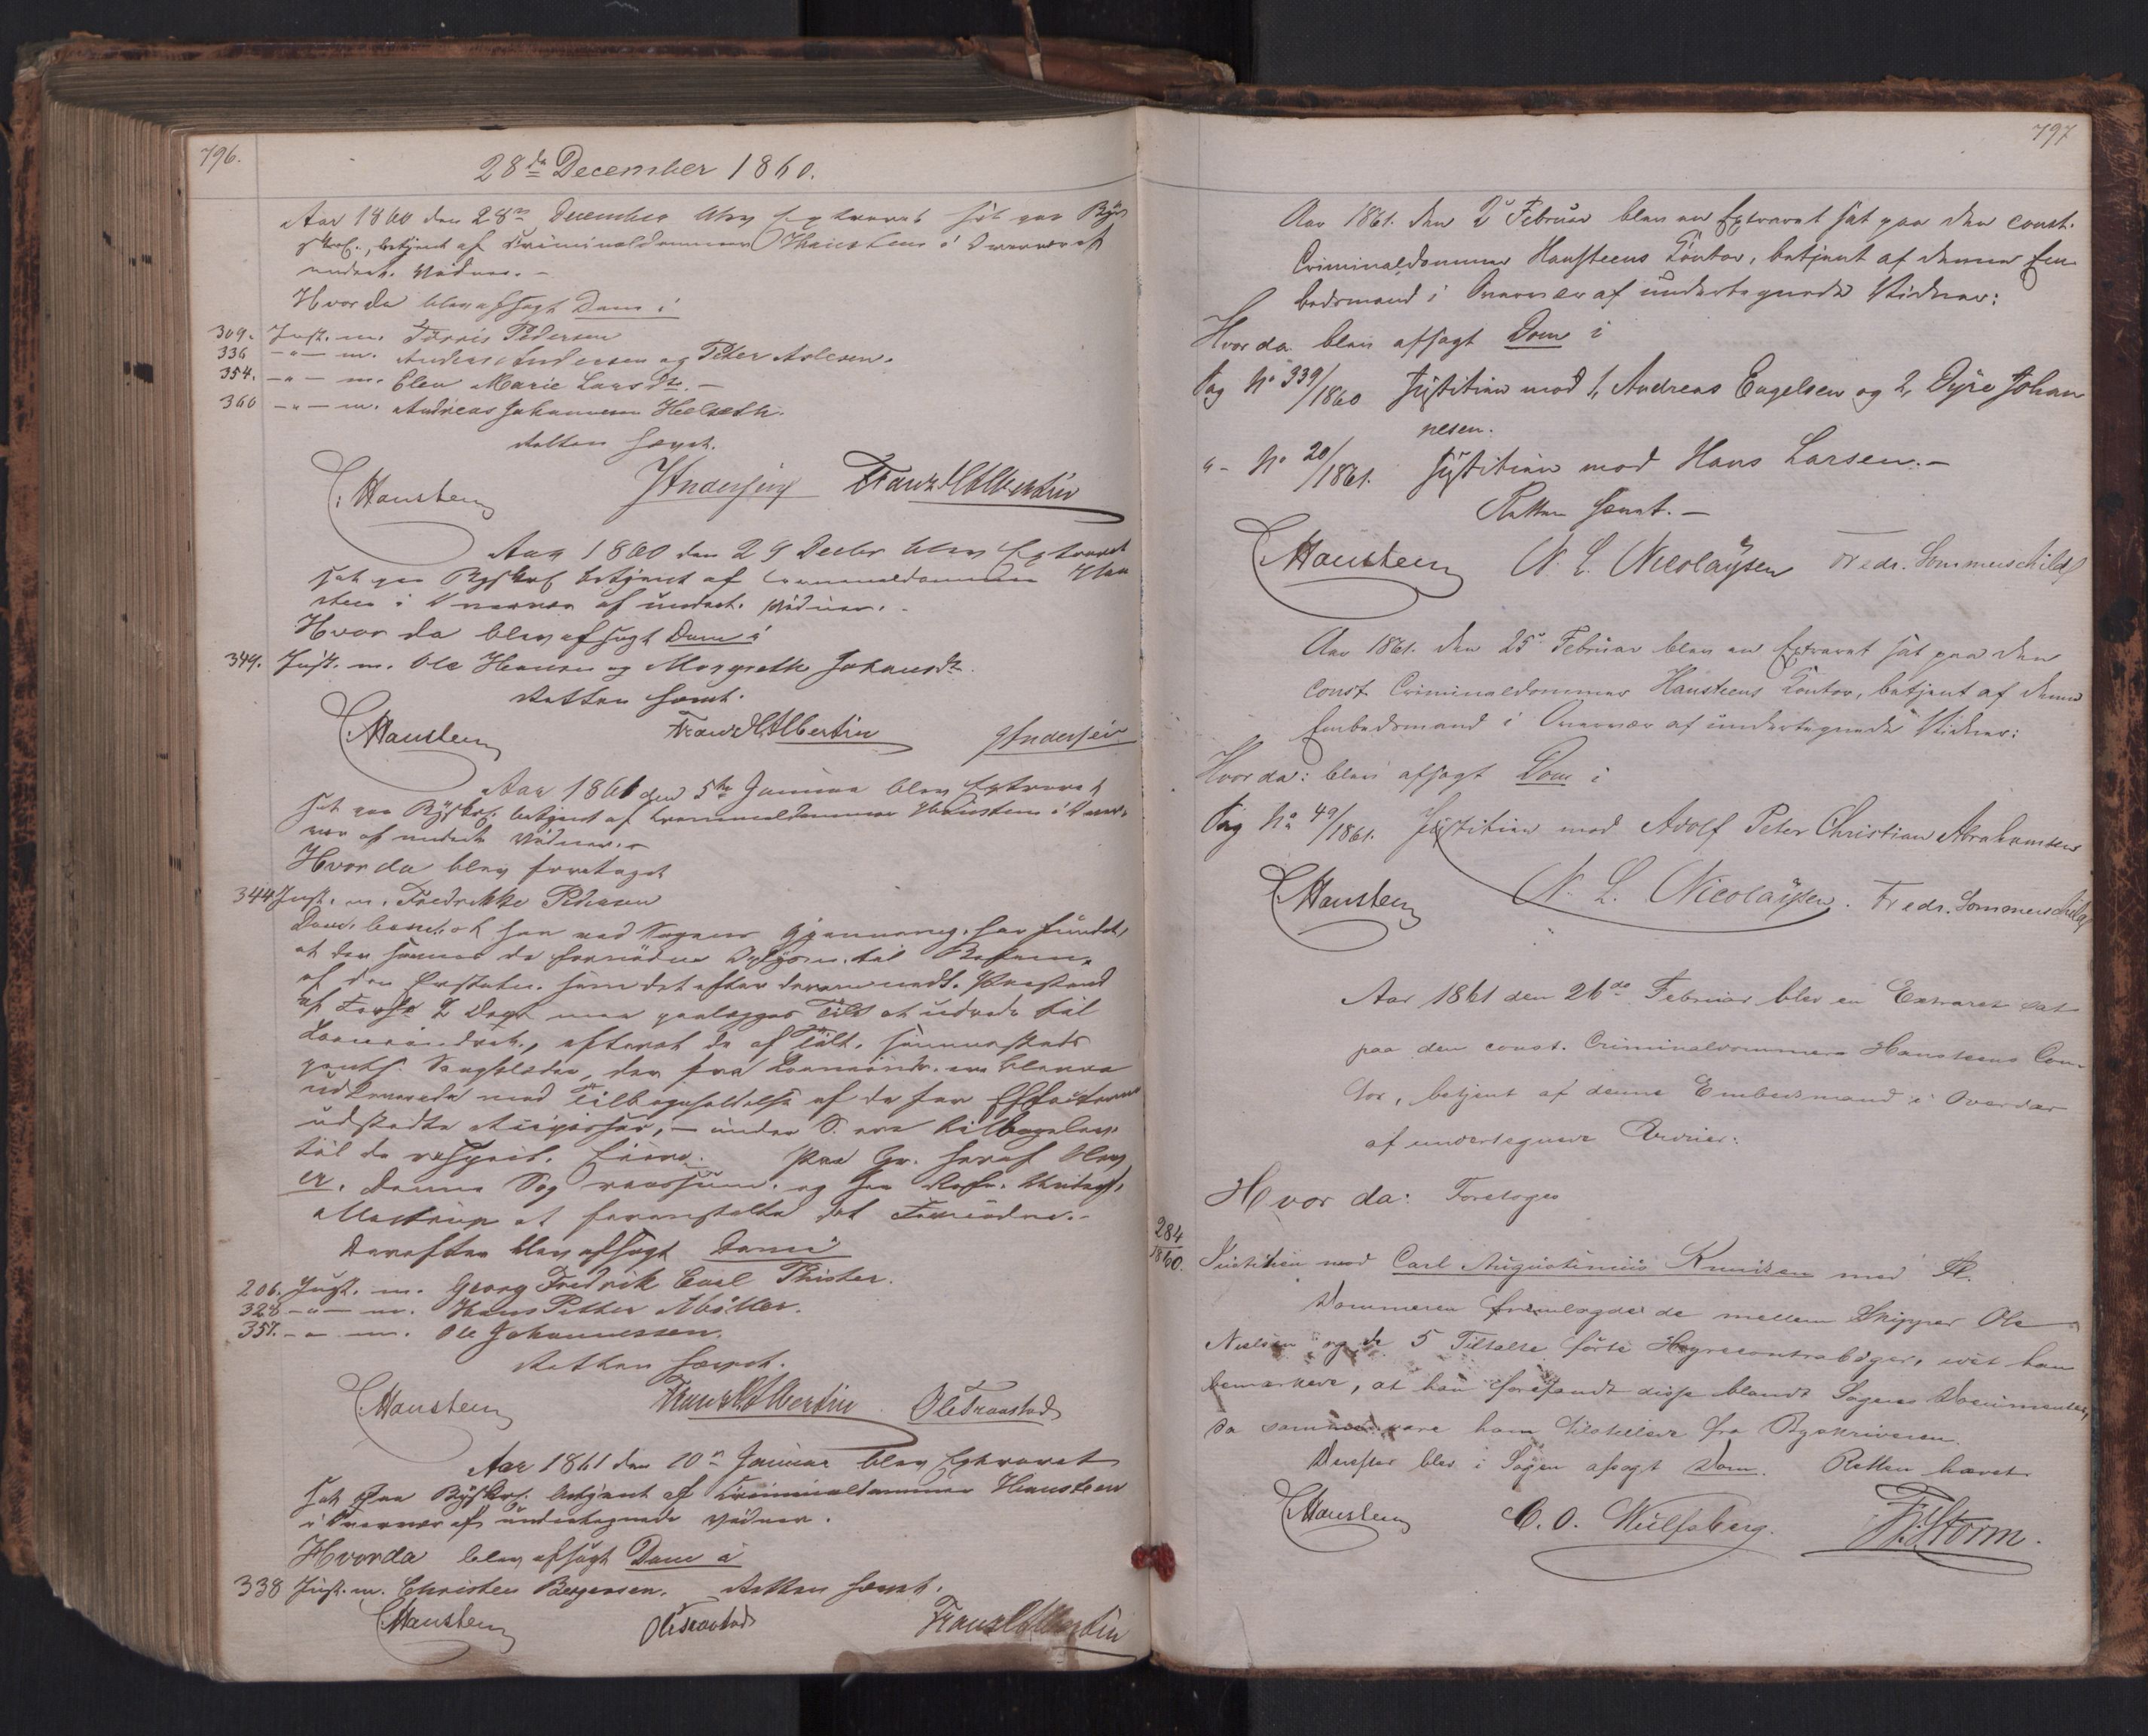 796.
28de December 1860.
Aar 1860 den 28de December blev Extraret sat paa By
skrk., betjent af Criminaldommer Hansteen i Overvær af
undert. Vidner. -
Hvor da blev afsagt Dom i
309. Just. m. Torris Pedersen
336 - " - m. Andreas Andersen og Peter Aslesen.
354. - " - m. Elen Marie Larsdtr. -
360 - " - m. Andreas Johannesen Helseth.
Retten hævet.
C. Hansteen J Andersen Franz H Albertin
Aar 1860 den 29 Decbr blev Extraret
sat paa Byskrk betjent af Criminaldommer Han
steen i Overvær af undert. Vidner. -
Hvor da blev afsagt Dom i
349. Just. m. Ole Hansen og Margrethe Johansdtr.
Retten hævet.
C. Hansteen Franz H Albertin J Andersen
Aar 1861 den 5te Januar blev Extraret
sat paa Byskrk. betjent af Criminaldommer Hansteen i Over-
vær af undert. Vidner. -
Hvor da blev foretaget
344 Just. m. Fredrikke Pedersen
Dom. bem. at han ved Sagens Gjennemg. har fundet,
at der savnes de fornødne Oplysn. til
af den Erstatn. som det efter
af 2 Dage maa paalægges Tilt. at udrede til
Laaneindretn., efterat de af Tilt.
pants. Sengklæder, der fra Laaneindr. ere blevne
udleverede mod Tilbageholdelse af de for Effecterne
udstedte - under S. ere tilbagelev.
til de respect. Eiere. Paa Gr. heraf blev
denne Sag
at foranstalte det Fornødne. -
Derefter blev afsagt Dom i
206. Just. m. Georg Fredrik Carl Thister.
328 - " - m. Hans Petter Møller.
357. - " - m. Ole Johannessen.
Retten hævet.
C. Hansteen Franz H Albertin Ole Traastad
Aar 1861 den 10de Januar blev Extraret
sat paa Byskrk. betjent af Criminaldommer Hansteen
i Overvær af undertegnede Vidner.
Hvorda blev afsagt Dom i
338 Just. m. Christen Børgersen. Retten hævet.
C. Hansteen Ole Traastad Franz H Albertin
797
Aar 1861. den 2den Februar blev en Extraret sat paa den const.
Criminaldommer Hansteens Contor, betjent af denne Em
bedsmand i Overvær af undertegnede Vidner:
Hvor da blev afsagt Dom i
Sag No 339/1860 Justitien mod 1, Andreas Engelsen og 2, Dyre Johan
nesen.
" - No 20/1861. Justitien mod Hans Larsen. -
Retten hævet. -
C. Hansteen N. L. Nicolaysen Fredr. Sommerschild
Aar 1861. den 25de Februar blev en Extraret sat paa den
const. Criminaldommer Hansteens Contor, betjent af denne
Embedsmand i Overvær af undertegnede Vidner:
Hvor da: blev afsagt Dom i
Sag No 49/1861. Justitien mod Adolf Peter Christian Abrahamsen
C. Hansteen N. L. Nicolaysen. Fredr. Sommerschild
Aar 1861 den 26de Februar blev en Extraret sat
paa den const. Criminaldommer Hansteens Con-
tor, betjent af denne Embedsmand i Overvær
af undertegnede Vidner:
Hvor da: Foretoges
284/1860. Justitien mod Carl Augustinius Knudsen med Fl.
Dommeren fremlagde de mellem Skipper Ole
Nielsen og de 5 Tiltalte førte Hyrecontrabøger, idet han
bemærkede, at han forefandt disse blandt Sagens Documenter,
da samme vare ham tilstillede fra Byskriveren.
Derefter blev i Sagen afsagt Dom. Retten hævet
C. Hansteen C. O. Wulfsberg. F. Storm.